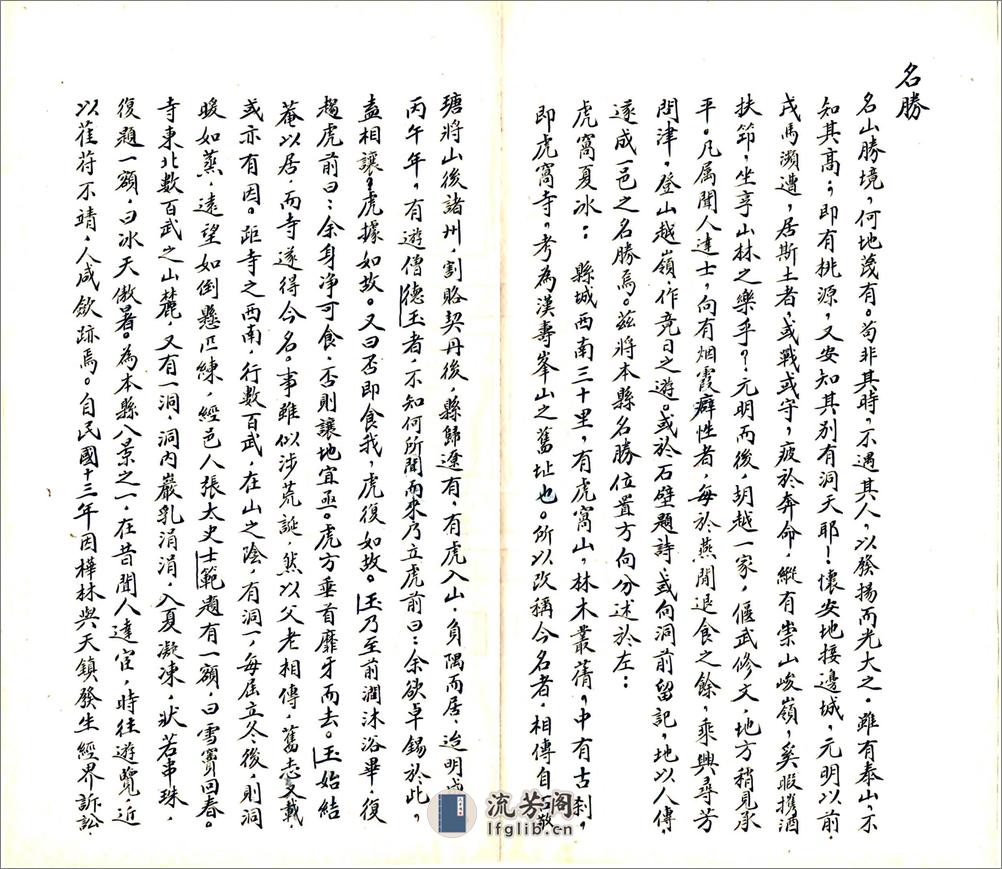 名勝
名山勝境，何地蔑有。茍非其時，不遇其人，以發揚而光大之，雖有泰山，不
知其高；即有桃源，又安知其別有洞天耶！懷安地接邊城，元明以前，
戎馬瀕遭，居斯土者，或戰或守，疲於奔命，縱有崇山峻嶺，奚暇携酒
扶筇，坐享山林之樂乎？元明而後，胡越一家，偃武修文，地方稍見承
平。凡属聞人達士，向有烟霞癖性者，每於燕閒退食之餘，乘興尋芳
問津，登山越嶺，作竟日之遊。或於石壁題詩，或向洞前留記，地以人傳，
遂成一邑之名勝焉。茲將本縣名勝位置方向分述於左：
虎窩夏冰： 縣城西南三十里，有虎窩山，林木叢蒨，中有古刹，
即虎窩寺，考為漢壽峯山之舊址也。所以改稱今名者，相傳自石敬
瑭將山後諸州，割賂契丹後，縣歸遼有，有虎入山，負隅而居，迨明成
丙午年，有遊僧德玉者，不知何所聞而來，乃立虎前曰：余欲卓錫於此，
盍相讓？虎據如故。又曰否即食我，虎復如故。玉乃至前澗沐浴畢，復
趨虎前曰：余身净可食，否則讓地宜亟。虎方垂首靡牙而去。玉始結
菴以居，而寺遂得今名。事雖似涉荒誕，然以父老相傳，舊志又載，
或亦有因。距寺之西南，行數百武，在山之陰，有洞一，每屆立冬後，則洞
暖如蒸，遠望如倒懸匹練，經邑人張太史士範題有一額，曰雪竇回春。
寺東北數百武之山麓，又有一洞，洞内巖乳涓涓，入夏凝凍，狀若串珠，
復題一額，曰冰天傲暑。為本縣八景之一，在昔聞人達官，時往遊覽，近
以萑苻不靖，人咸歛跡焉。自民國十三年因樺林與天鎮發生經界訴訟，
流芳阁
lfglib.cn